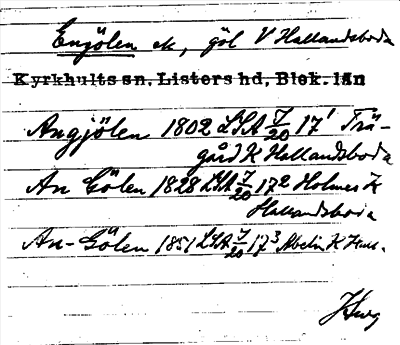 Enjölen ek, göl V Hallandsboda
Kyrkhults sn. Listers hd, Blek. län
Angjölen 1802 LSA J/20 17¹ Trä-
gård K Hallandsboda
An Gölen 1828 LSA J/20 17² Holmer K
Hallandsboda
An-Gölen 1851 LSA J/20 17³ Abelin K